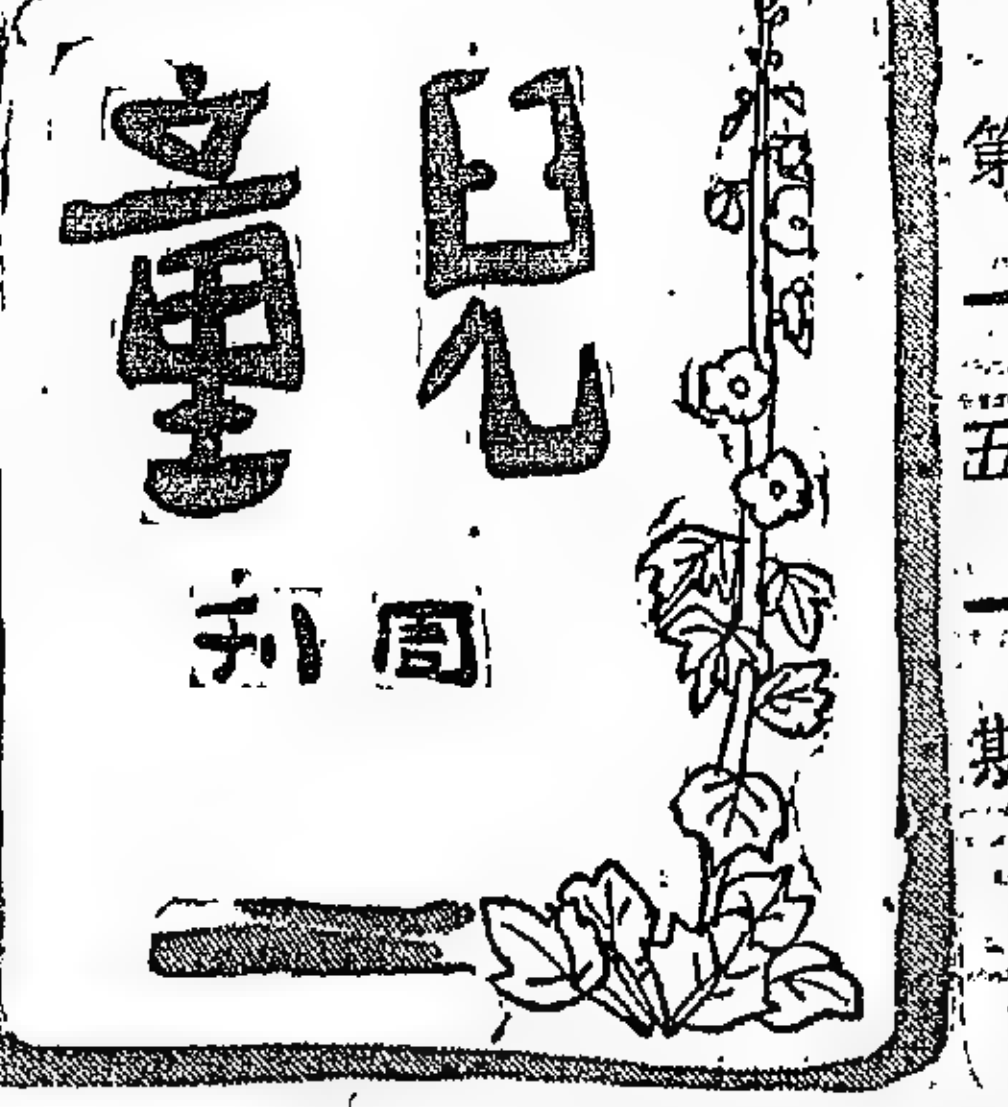 兒童
周刊
第一五一期